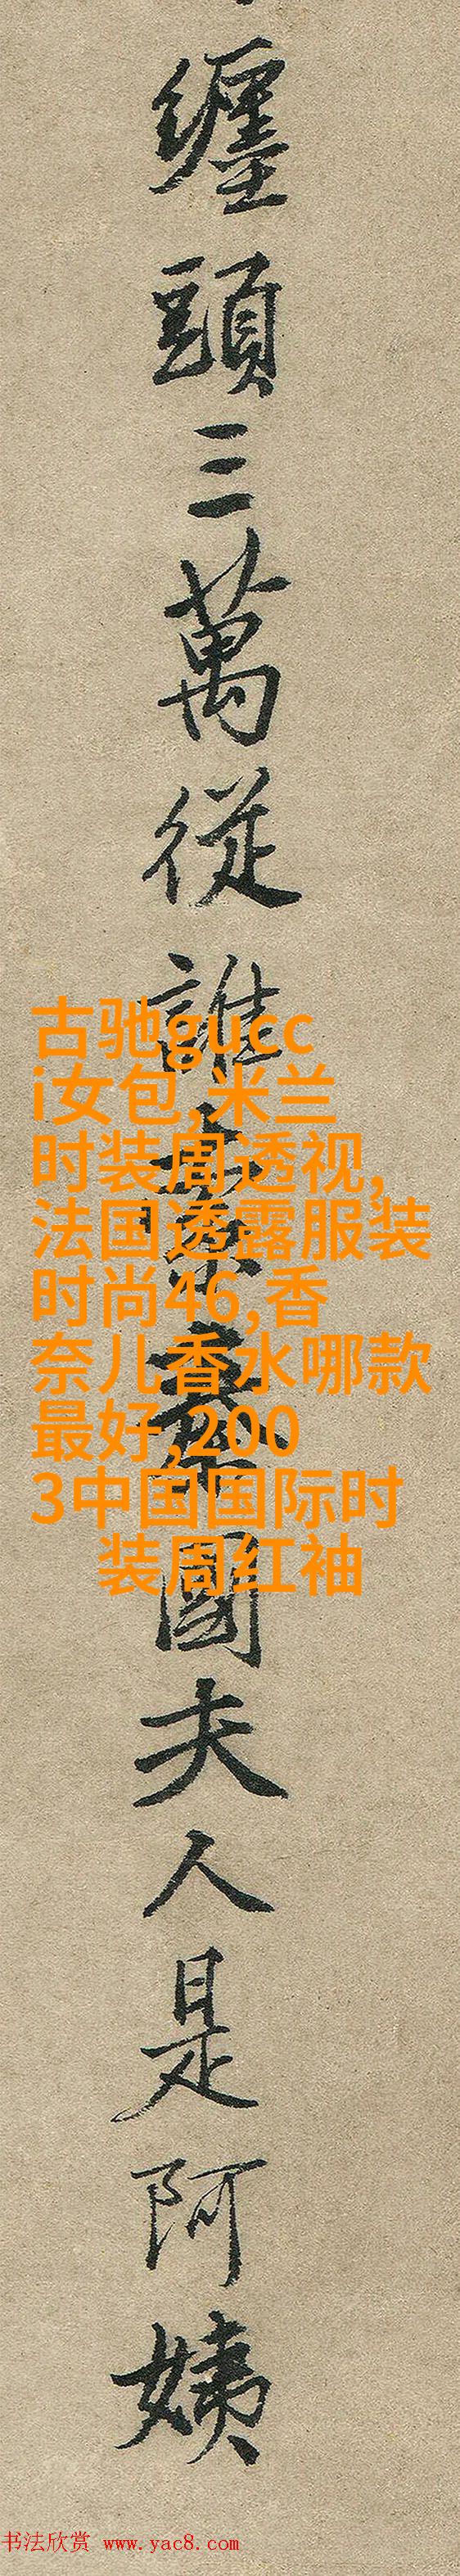 纏頭三萬從誰索秦國夫人是阿姨
古驰gucc
i女包,米兰
时装周透视,
法国透露服装
时尚46,香
奈儿香水哪款
最好,200
3中国国际时
装周红袖
书法欣赏 www.yac8.com